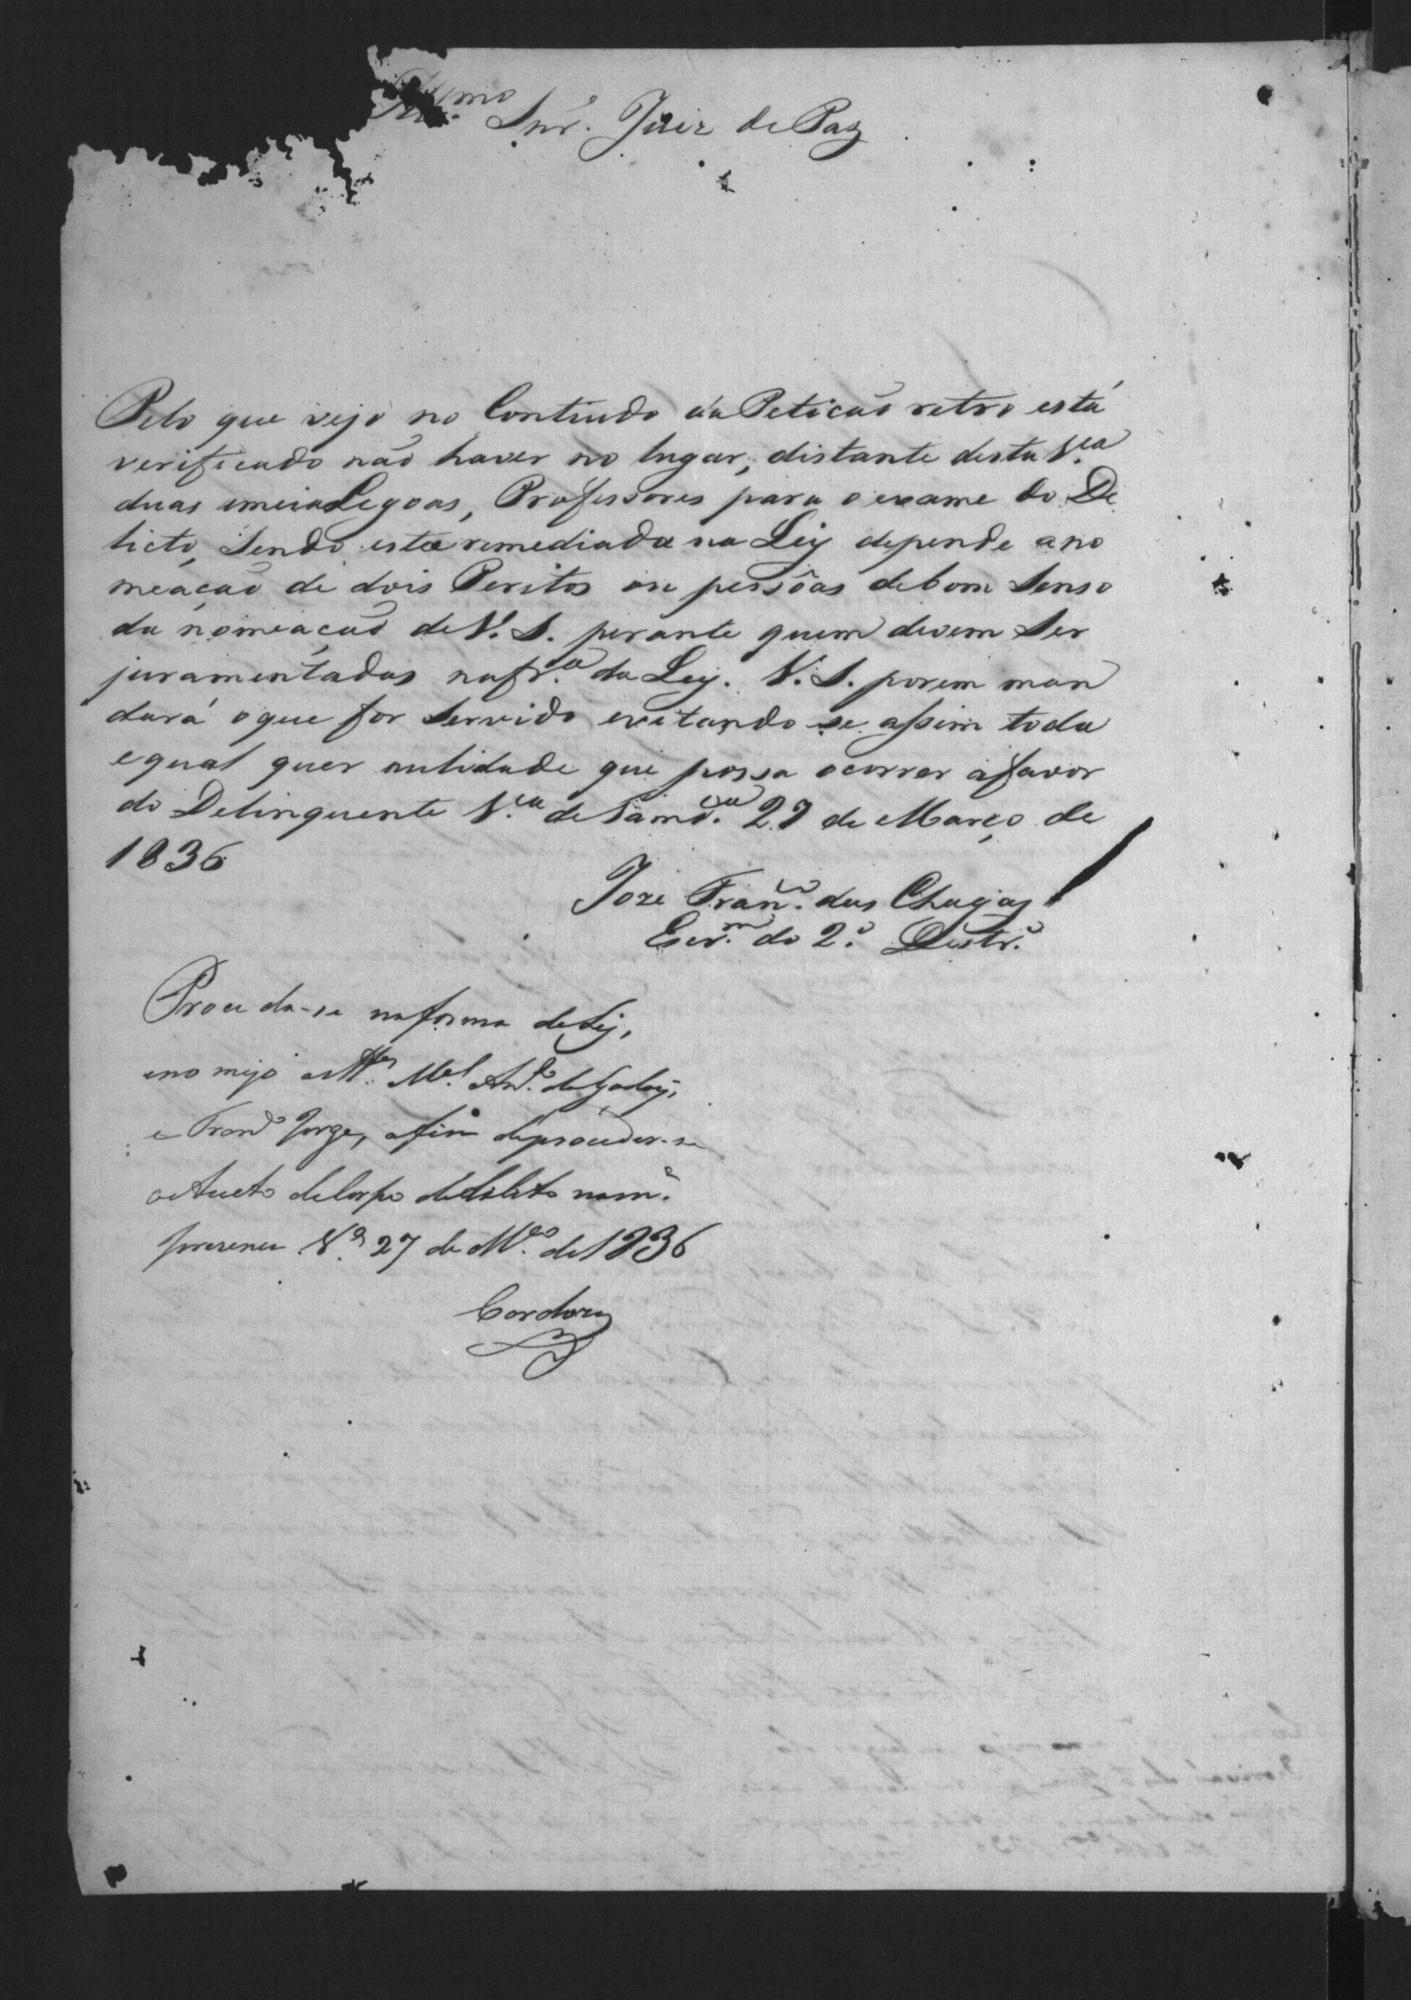 Illmo Snr. Juiz de Paz
Pelo que vejo no Contiudo da Peticão retro está
verificado não haver no lugar, distante desta V.ca
duas emeia Legoas, Professores para o exame do De
licto, Sendo esta remediada na Ley depende a no
meacão de dois Peritos ou pessôas debom Senso
da nomeacão de V. S. perante quem devem Ser
juramentados nafr.a da Ley. V. S. porem man
dará oque for Servido evitando se assim toda
equal quer nulidade que possa ocorrer afavor
do Delinquente V.ca de 27 de Março de
1836
Joze Fran.co das Chagas
Escr.m do 2.o Distr.o
Proceda-se naforma da Ley,
enomejo M.el An.to de Godoy,
e Fran.co Jorge, afim deproceder-se
oAucto deCorpo dedelicto nam.a
presença V.a 27 de M.ço de 1836